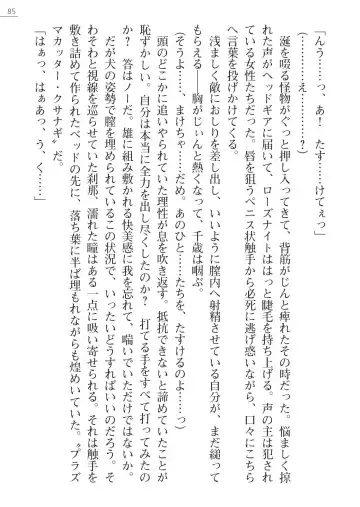 85
「んう……っ、あ！　たす……けてぇっ」
（……え………？）
　涎を啜る怪物がぐっと押し入ってきて、背筋がじんと痺れたその時だった。悩ましく掠
れた声がヘッドギアに届いて、ローズナイトははっと睫毛を持ち上げる。声の主は犯され
ている女性たちだった。唇を狙うペニス状触手から必死に逃げ惑いながら、口々にこちら
へ言葉を投げかけてくる。
　浅ましく敵におしりを差し出し、いいように膣内へ射精させている自分が、まだ縋って
もらえる――胸がじぃんと熱くなって、千歳は咽ぶ。
（そうよ……、まけちゃ……だめ。あのひと……たちを、たすけるのよ……っ）
　頭のどこかに追いやられていた理性が息を吹き返す。抵抗できないと諦めていたことが
恥ずかしい。自分は本当に全力を出し尽くしたのか？　打てる手をすべて打ってみたの
か？　答はノーだ。雄に組み敷かれる快美感に我を忘れて、喘いでいただけではないか。
　だが犬の姿勢で膣を埋められているこの状況で、いったいどうすればいいのだろう。そ
わそわと視線を巡らせていた刹那、濡れた瞳はある一点に吸い寄せられる。それは触手を
敷き詰めて作られたベッドの先に、落ち葉に半ば埋もれながらも煌めいていた。“プラズ
マカッター・クサナギ”だ。
「はぁっ、はぁあっ、う、く……」